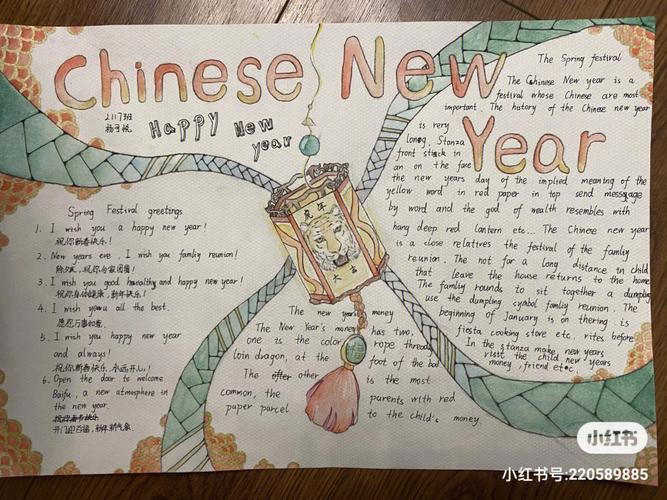 Chinese New Year
2117班
Happy New year
Spring Festival greetings
1. I wish you a happy new year!
祝你新春快乐!
2. New years eve, I wish you famliy reunion!
除夕夜,祝你与家团圆!
3. I wish you good healthy and happy new year!
祝你身体健康,新年快乐!
4. I wish you all the best.
愿您万事如意.
5. I wish you happy new year
and always!
祝你新春快乐,永远开心!
6. Open the door to welcome
Baifu, a new atmosphere in
the new year.
开门迎百福,新年新气象
虎年
大吉
The new year money
The New Year's money has two,
one is the color rope thread
loin dragon, at the foot of the bod
The other is the most
common, the parents with red
puper parcel to the child's money.
The Spring festival
The Chinese New year is a
festival whose Chinese are most
important. The history of the Chinese new year
is very
long. Stanza
front stick in
an on the face
the new years day of the implied meaning of the
yellow word in red paper in top send message
by word and the god of wealth resembles with
hang deep red lantern etc... The Chinese new year
is a close relatives the festival of the famliy
reunion. The not for a long distance in child
that leave the house returns to the home
The famliy rounds to sit together a dumpling
use the dumpling symbol famliy reunion. The
beginning of January is on thering is
fiesta cooking store etc. rites before
In the stanza make new years
visit the child new years
money, friend etc.
小红书
小红书号:220589885